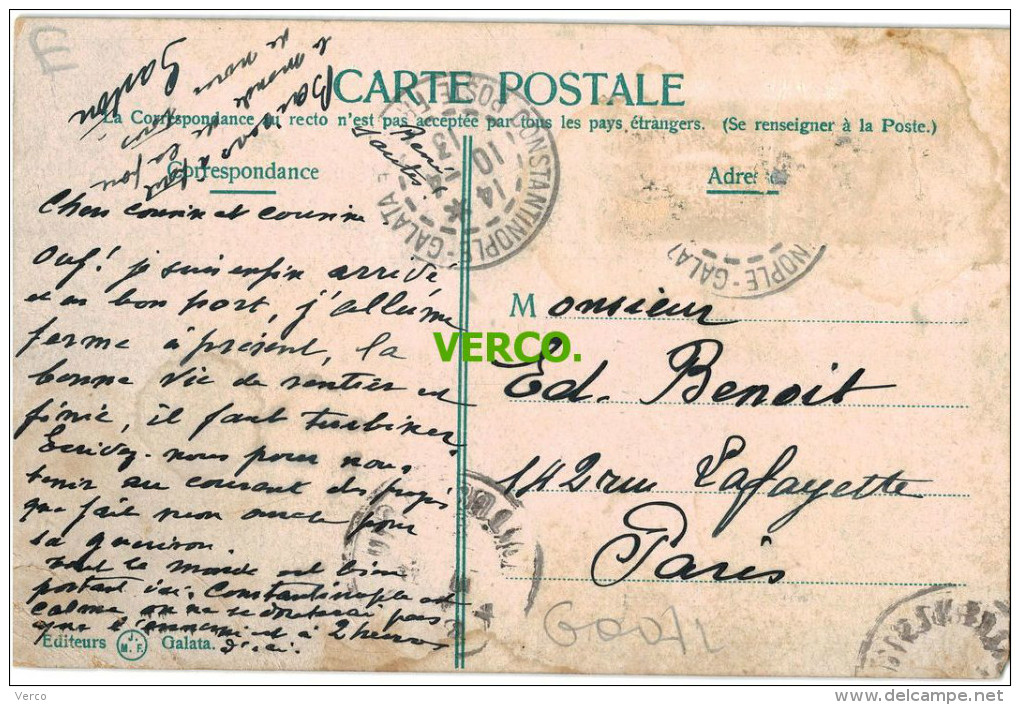 CARTE POSTALE
La Correspondance au recto n'est pas acceptée par tous les pays étrangers. (Se renseigner à la Poste.)
Correspondance
Adresse
CONSTANTINOPLE-GALATA
14 10
13
POSTE FRSE
NOPLE-GALAT
Gaston
Chers cousin et cousine
Ouf! je suis enfin arrivé
et en bon port, j'allume
ferme à présent, la
bonne vie de rentier est
finie, il faut turbiner
Ecrivez-nous pour nous
tenir au courant des progrès
que fait mon oncle pour
sa guérison.
Tout le monde est bien
portant ici. Constantinople est
calme on ne se douterai pas
que l'ennemi est à 2 heures
d'ici.
Monsieur
Ed. Benoit
142 rue Lafayette
Paris
VERCO.
Editeurs J. M. F. Galata.
Verco
www.delcampe.net